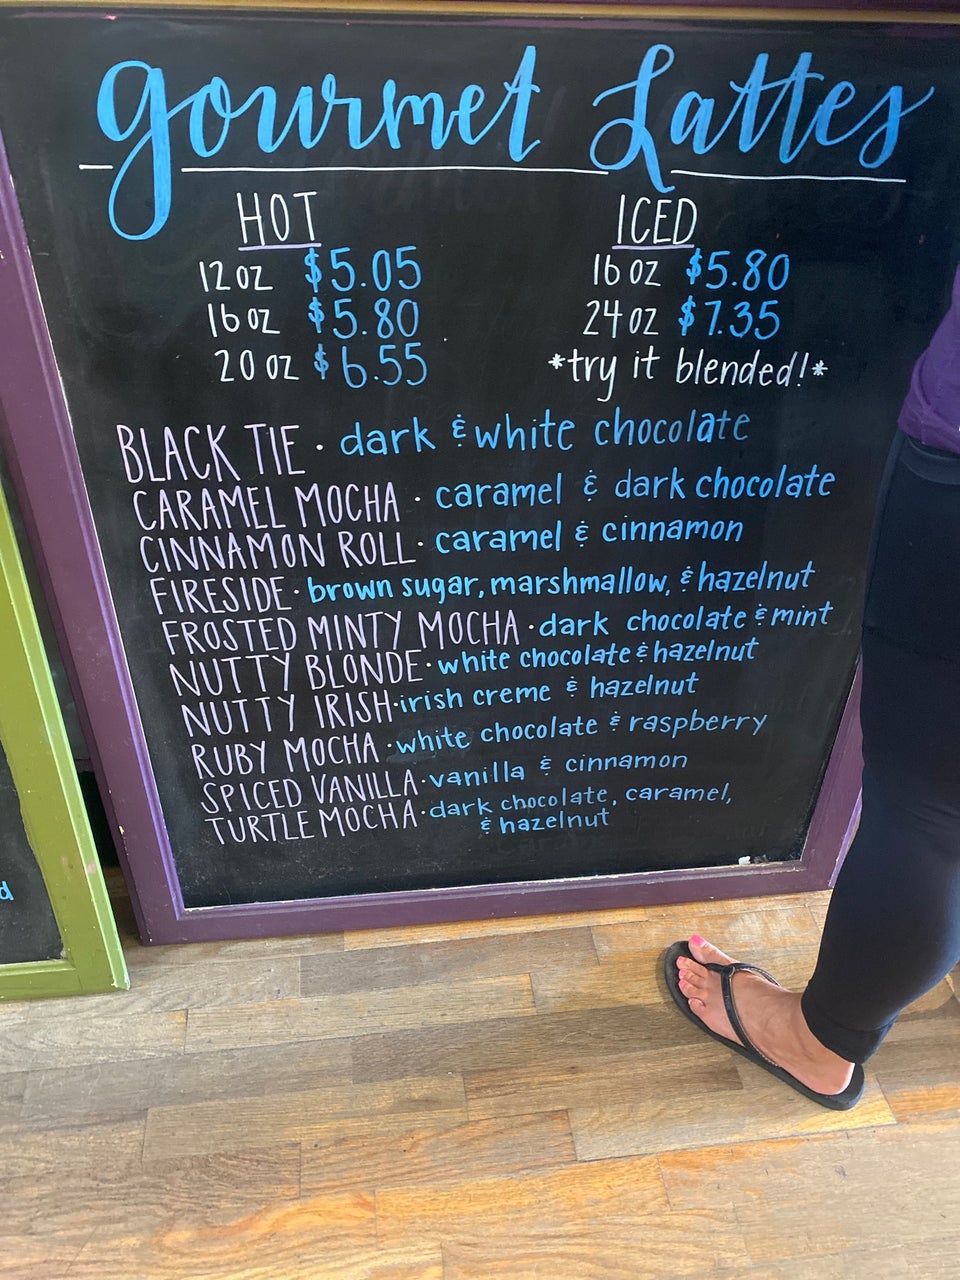 gourmet Lattes
HOT
12 oz $5.05
16 oz $5.80
20 oz $6.55
ICED
16 oz $5.80
24 oz $7.35
*try it blended!*
BLACK TIE · dark & white chocolate
CARAMEL MOCHA · caramel & dark chocolate
CINNAMON ROLL · caramel & cinnamon
FIRESIDE · brown sugar, marshmallow, & hazelnut
FROSTED MINTY MOCHA · dark chocolate & mint
NUTTY BLONDE · white chocolate & hazelnut
NUTTY IRISH · irish creme & hazelnut
RUBY MOCHA · white chocolate & raspberry
SPICED VANILLA · vanilla & cinnamon
TURTLE MOCHA · dark chocolate, caramel,
& hazelnut